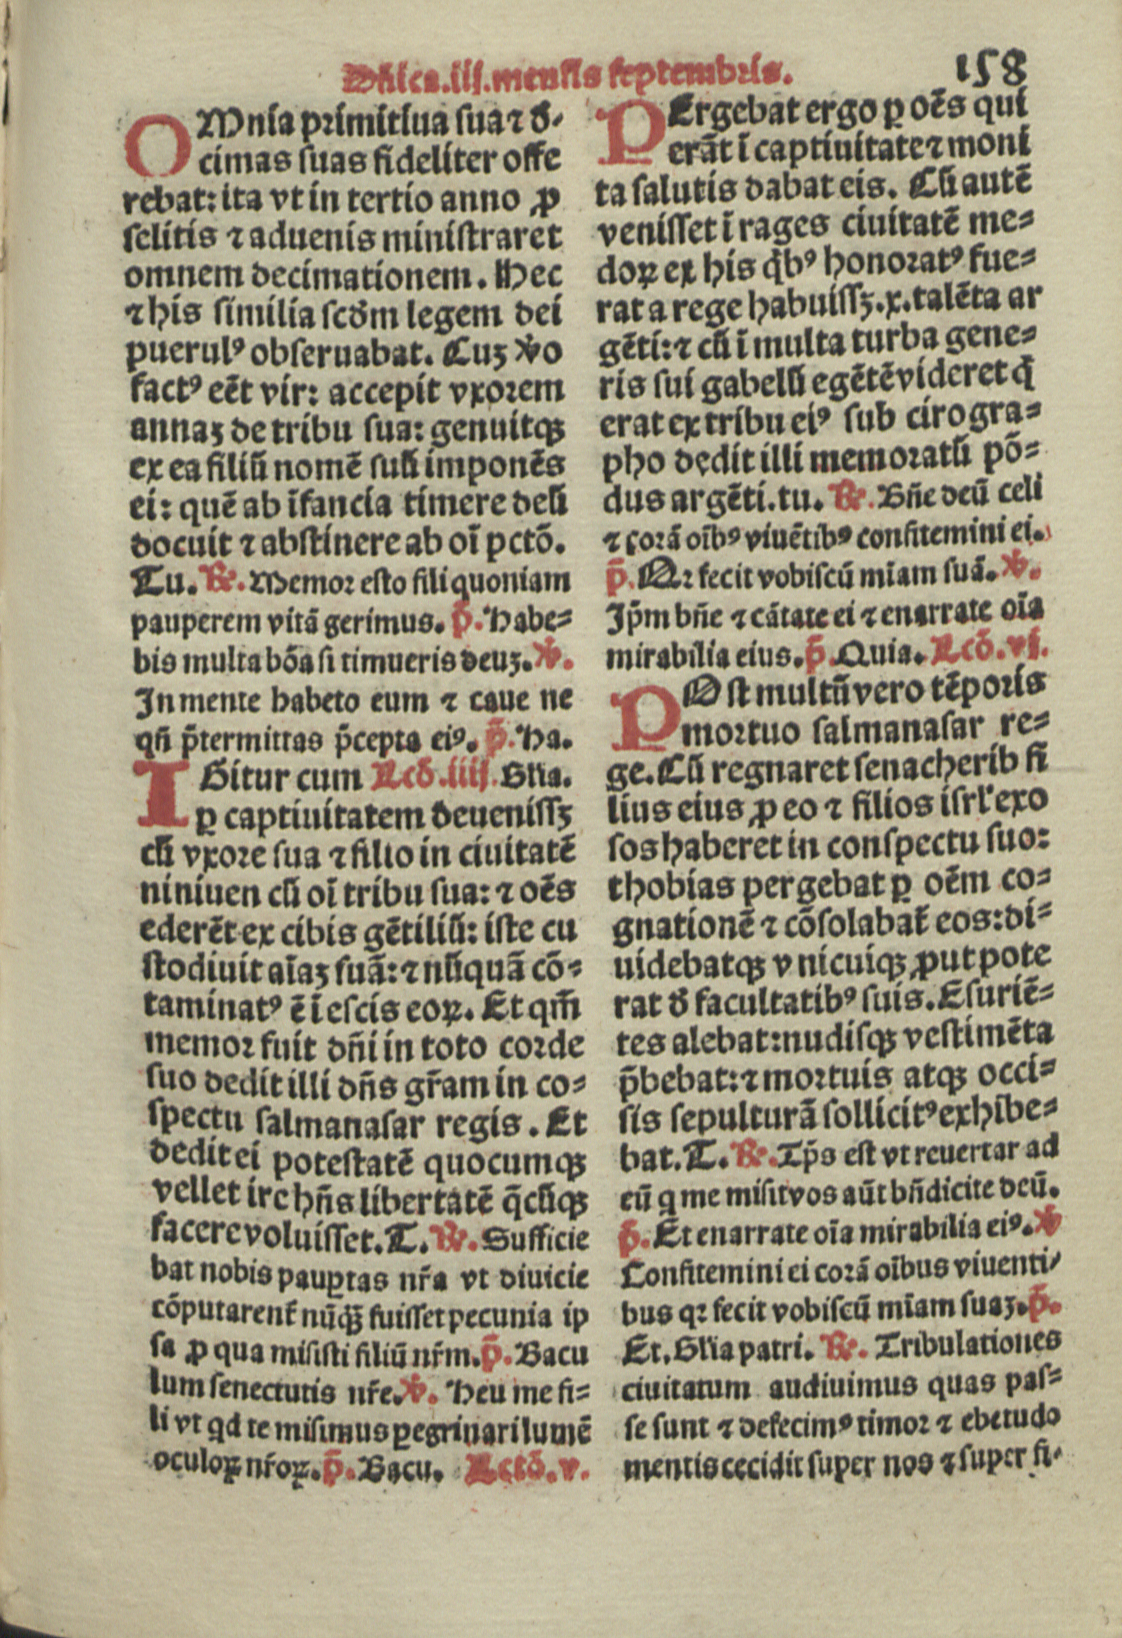 Dñica.iij.mensis septembris. 158
OMnia primitiua sua ⁊ đ-
cimas suas fideliter offe
rebat: ita vt in tertio anno ꝓ
selitis ⁊ aduenis ministraret
omnem decimationem. Hec
⁊ his similia scđm legem dei
puerulꝰ obseruabat. Cuꝫ ꝟo
factꝰ eēt vir: accepit vxorem
annaꝫ de tribu sua: genuitqꝫ
ex ea filiū nomē suū imponēs
ei: quē ab īfancia timere deū
docuit ⁊ abstinere ab oī pctō.
Tu. ℟. Memor esto fili quoniam
pauperem vitā gerimus. p̄. Habe-
bis multa bōa si timueris deuꝫ. ℣.
In mente habeto eum ⁊ caue ne
qñ p̄termittas p̄cepta eiꝰ. p̄. Ha.
IGitur cum Lcō.iiij. Gl'ia.
ꝑ captiuitatem deuenissꝫ
cū vxore sua ⁊ filio in ciuitatē
niniuen cū oī tribu sua: ⁊ oēs
ederēt ex cibis gētiliū: iste cu
stodiuit aīaꝫ suā: ⁊ nūquā cō-
taminatꝰ ē ī escis eoꝝ. Et qm̄
memor fuit dñi in toto corde
suo dedit illi dñs gr̄am in co-
spectu salmanasar regis. Et
dedit ei potestatē quocumqꝫ
vellet ire hñs libertatē q̄cūqꝫ
facere voluisset. T. ℟. Sufficie
bat nobis pauꝑtas nr̄a vt diuicie
cōputarent̄ nūqꝫ̄ fuisset pecunia ip
sa ꝓ qua misisti filiū nr̄m. p̄. Bacu
lum senectutis nr̄e. ℣. Heu me fi-
li vt qd te misimus ꝑegrinari lumē
oculoꝝ nr̄oꝝ. p̄. Bacu. Lctō.v.
PErgebat ergo ꝑ oēs qui
erāt ī captiuitate ⁊ moni
ta salutis dabat eis. Cū autē
venisset ī rages ciuitatē me-
doꝝ ex his q̄bꝰ honoratꝰ fue-
rat a rege habuissꝫ.x.talēta ar
gēti: ⁊ cū ī multa turba gene-
ris sui gabelū egētē videret q̄
erat ex tribu eiꝰ sub cirogra-
pho dedit illi memoratū pō-
dus argēti. tu. ℟. Bñe deū celi
⁊ corā oībꝰ viuētibꝰ confitemini ei.
p̄. Qꝛ fecit vobiscū mīam suā. ℣.
Ip̄m bñe ⁊ cātate ei ⁊ enarrate oīa
mirabilia eius. p̄. Quia. Lcō.vj.
POst multū vero tēporis
mortuo salmanasar re-
ge. Cū regnaret senacherib fi
lius eius ꝓ eo ⁊ filios isrl' exo
sos haberet in conspectu suo:
thobias pergebat ꝑ oēm co-
gnationē ⁊ cōsolabat̄ eos: di-
uidebatqꝫ vnicuiqꝫ ꝓut pote
rat đ facultatibꝰ suis. Esuriē-
tes alebat: nudisqꝫ vestimēta
p̄bebat: ⁊ mortuis atqꝫ occi-
sis sepulturā sollicitꝰ exhibe-
bat. T. ℟. Tp̄s est vt reuertar ad
eū q me misit vos aūt bñdicite deū.
p̄. Et enarrate oīa mirabilia eiꝰ. ℣
Confitemini ei corā oībus viuenti-
bus qꝛ fecit vobiscū mīam suaꝫ. p̄.
Et. Gl'ia patri. ℟. Tribulationes
ciuitatum audiuimus quas pas-
se sunt ⁊ defecimꝰ timor ⁊ ebetudo
mentis cecidit super nos ⁊ super fi-